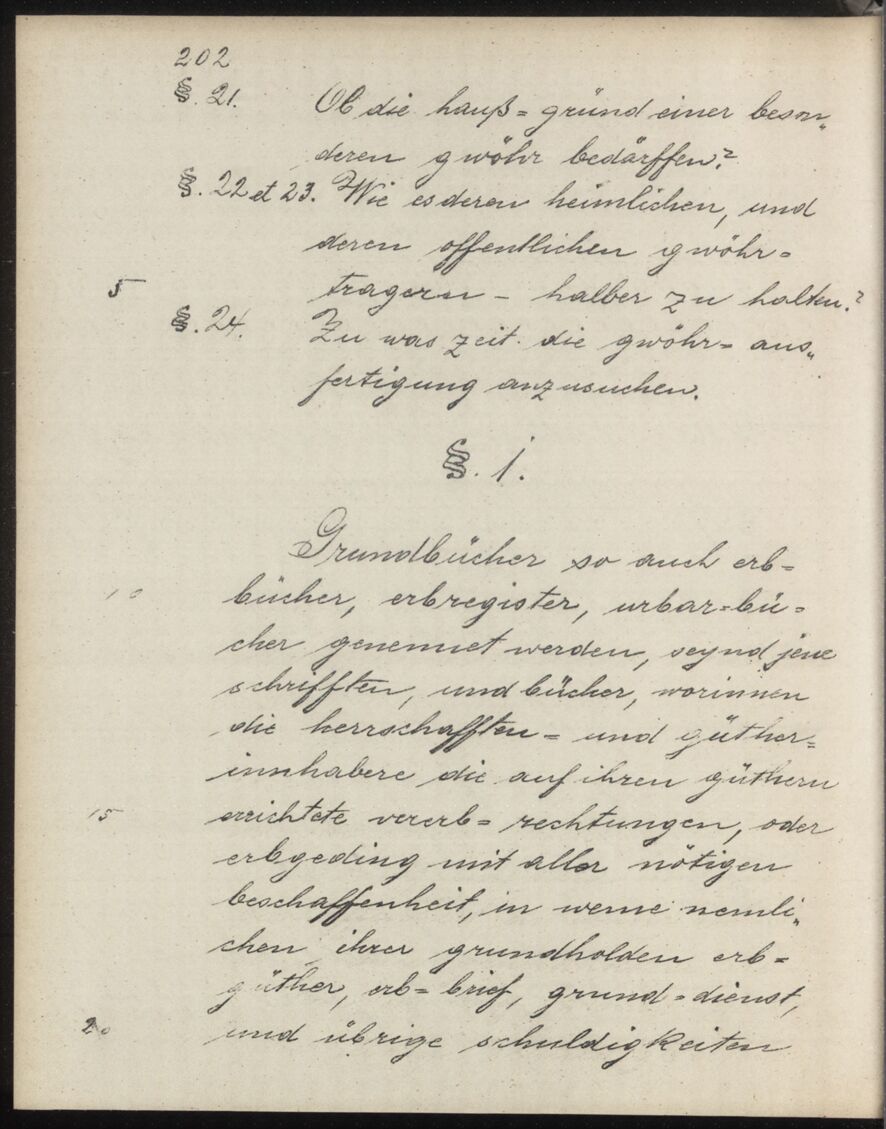 202
§. 21. Ob die hauß= gründ einer beson„
deren gwöhr bedärffen?
§. 22 et 23. Wie es deren heimlichen, und
deren offentlichen gwöhr=
5 tragern - halber zu halten?
§. 24. Zu was zeit die gwöhr= aus„
fertigung anzusuchen.
§. 1.
Grundbücher so auch erb=
10 bücher, erbregister, urbar=bü=
cher genennet werden, seynd jene
schrifften, und bücher, worinnen
die herrschafften= und güther=
innhabere die auf ihren güthern
15 errichtete vererb= rechtungen, oder
erbgeding mit aller nötigen
beschaffenheit, in weme nemli„
chen ihrer grundholden erb=
güther, erb= brief, grund=dienst,
20 und übrige schuldigkeiten